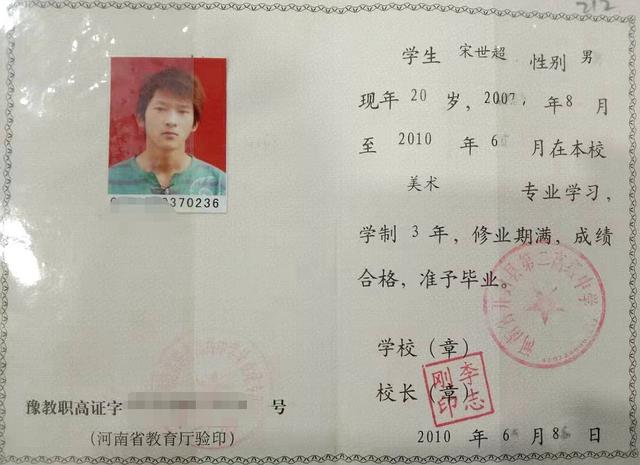 212
学生 宋世超 性别 男
现年 20 岁，2007 年 8 月
至 2010 年 6 月在本校
美术 专业学习，
学制 3 年，修业期满，成绩
合格，准予毕业。
学校（章）
校长（章）
李志刚印
2010 年 6 月 8 日
370236
豫教职高证字 号
（河南省教育厅验印）